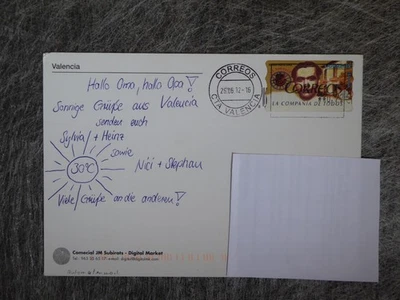 Valencia
Hallo Oma, hallo Opa!
Sonnige Grüße aus Valencia
senden euch
Sylvia + Heinz
sowie
30°C
Nici + Stephan
Viele Grüße an die anderen!
CORREOS
CTA. VALENCIA
CORREOS
LA COMPAÑIA DE TODOS
Comercial JM Subirats - Digital Market